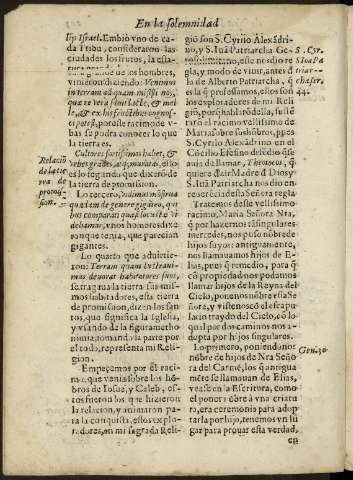 En la solemnidad
lip Israel. Embiò vno de ca-
da Tribu, consideraron las
ciudades los frutos, la esta-
de los hombres,
vinieron diziendo: Venimus
in terram ad quam misisti nos,
quæ re vera fluit lacte, & mel
le, & ex his fructibus cognos-
ci potest, por este racimo de v-
bas se podra conocer lo que
la tierra es.
Cultores fortissimos habet, &
vrbes grandes
es lo segundo que dixerõ de
la tierra de promision.
Lo tercero, vidimus mõstrua
quædam de genere gigãteo, qui
bus comparati quasi locustæ vi
debamur, vnos hombres dixe
ron que tenia, que parecian
gigantes.
Lo quarto que aduirtie-
ron: Terram
deuorat habitatores suos,
se traga la tierra sus mis-
mos habitadores, esta tierra
de promission, dizen los san-
tos, que significa la Iglesia,
y vsando de la figura metho-
nimia, tomando la parte por
el todo, representa mi Reli-
gion.
Empeçemos por el raci-
mo, que venia sobre los hõ-
bros de Iosue, y Caleb, es-
tos fueron los que hizieron
la relacion, y animaron pa-
ra la conquista, estos explo-
radores, en mi sagrada Reli-
Relaciõ
de la tie
rra de
promis-
sion.
gió son S. Cyrilo Alexãdri-
no, y S. Iuã Patriarcha Ge-
rosolimitano, este nos dio re
gla, y modo de viuir, antes q̃
de Alberto Patriarcha, q̃
los Armeses, estos son
los exploradores de mi Reli
gió, por q̃ hablãdo della, fuste
tarõ al racimo vellissimo de
Maria sobre sus hõbros, pues
S. Cyrilo Alexãdrino en el
Cõcilio Efesino defẽdio q̃ se
auia de llamar, Theotocos, q̃
quiere dezir Madre de Dios, y
S. Iuã Patriarcha nos dio en
cerecerencia desta Señora regla
Tratemos deste vellissimo
racimo, Maria Señora Nra,
q̃ por hazernos tã singulares
mercedes, nos puso nõbre de
hijos suyos: antiguamente,
nos llamauamos hijos de E-
lias, pues q̃ remedio, para q̃
cõ propriedad nos podamos
llamar hijos de la Reyna del
Cielo, ponenos nõbre esta Se
ñora, y vistenos cõ el escapu-
lario traydo del Cielo, cõ lo
qual por dos caminos nos a-
depta por hijos singulares.
Lo primero, poniendo nos
nõbre de hijos de Nra Seño
ra del Carmẽ, los q̃ antigua
mẽte se llamauan de Elias,
y vsase en la Escritura, como
el poner nõbre à vna criatu
ra, era ceremonia para adop
tarla por hijo, tenemos vn lu
gar para prouar esta verdad,
en
S. Cyr.
S. Iuã Pa
triar-
cha ser.
44.
Gen. 30.